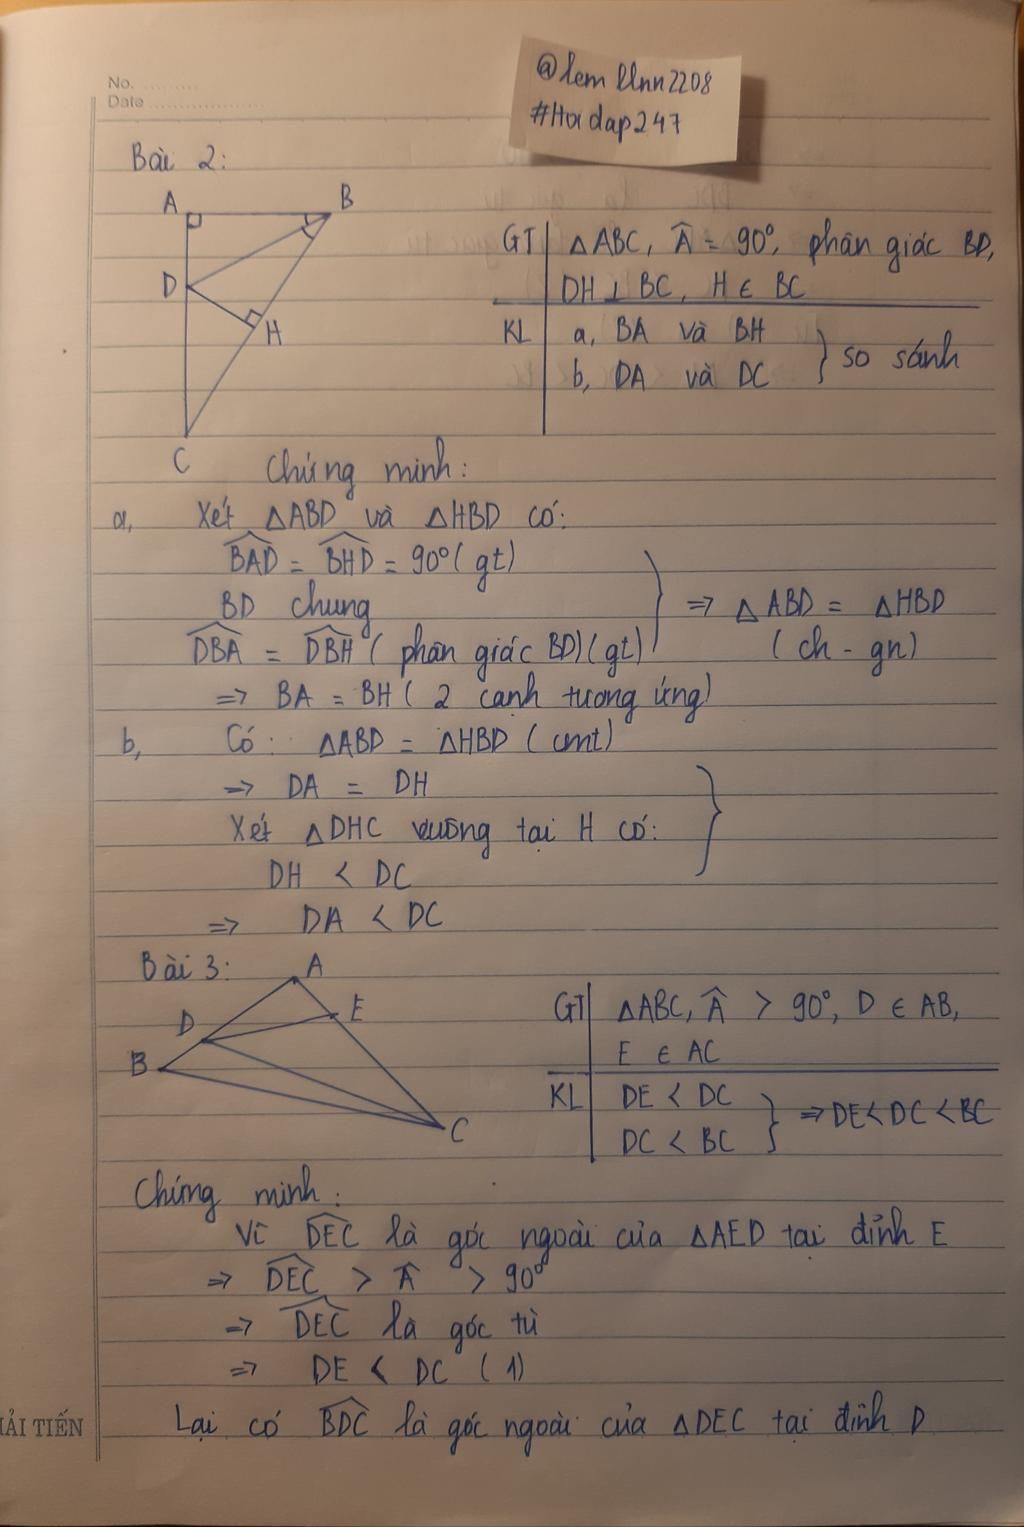 No. ..........
Date ....................
@lemllnn2208
#Hoidap247
Bài 2:
A
B
D
H
C
GT
△ABC, Â = 90°, phân giác BD,
DH ⊥ BC, H ∈ BC
KL
a, BA và BH
b, DA và DC
} so sánh
Chứng minh:
a, Xét △ABD và △HBD có:
BAD = BHD = 90° (gt)
BD chung
DBA = DBH (phân giác BD) (gt)
} => △ABD = △HBD
(ch - gn)
=> BA = BH (2 cạnh tương ứng)
b, Có: △ABD = △HBD (cmt)
=> DA = DH
Xét △DHC vuông tại H có:
DH < DC
}
=> DA < DC
Bài 3:
A
D
E
B
C
GT
△ABC, Â > 90°, D ∈ AB,
E ∈ AC
KL
DE < DC
DC < BC
} => DE < DC < BC
Chứng minh:
Vì DEC là góc ngoài của △AED tại đỉnh E
=> DEC > Â > 90°
=> DEC là góc tù
=> DE < DC (1)
Lại có BDC là góc ngoài của △DEC tại đỉnh D
ẢI TIẾN